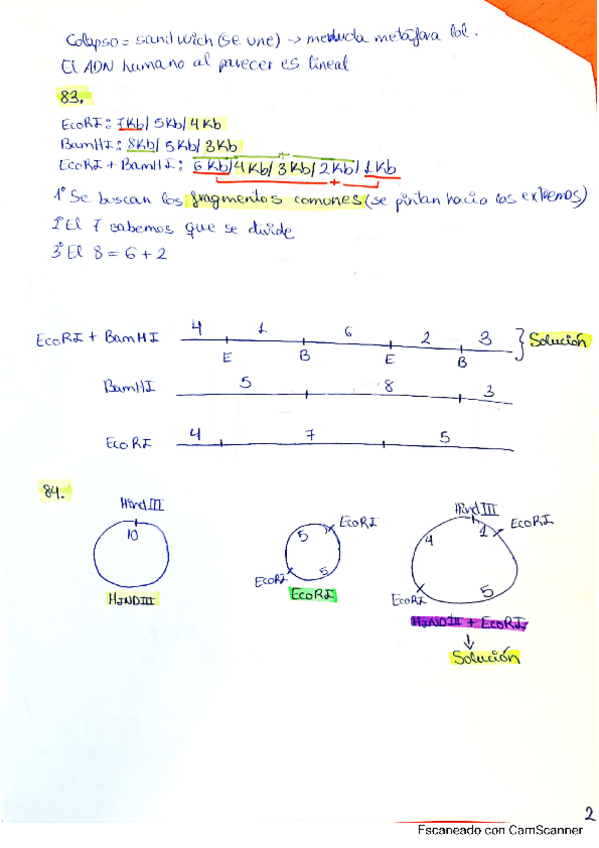 Colapso = sandwich (se une) → menuda metáfora lol.
El ADN humano al parecer es lineal
83.
EcoRI: 7Kb/ 5Kb/ 4Kb
BamHI: 8Kb/ 5Kb/ 3Kb
EcoRI + BamHI: 6Kb/ 4Kb/ 3Kb/ 2Kb/ 1Kb
1º Se buscan los fragmentos comunes (se pintan hacia los extremos)
2º El 7 sabemos que se divide
3º El 8 = 6 + 2
EcoRI + BamHI 4 1 6 2 3 Solución
E B E B
BamHI 5 8 3
EcoRI 4 7 5
84.
Hind III
10
HINDIII
EcoRI
5
5
EcoRI
EcoRI
Hind III
1
EcoRI
4
5
EcoRI
HINDIII + EcoRI
↓
Solución
2
Escaneado con CamScanner